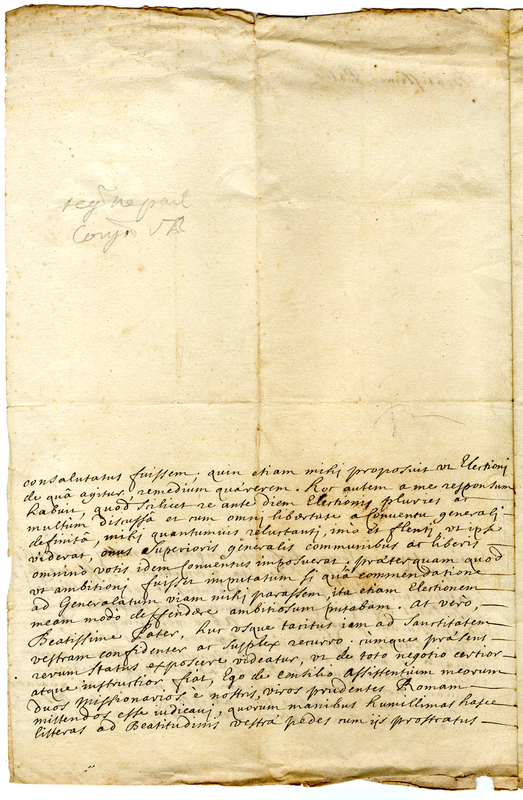 consalutatus fuissem. quin etiam mihj proposuit vt Electionj
de quâ agitur, remedium quærerem. Hoc autem a me responsum
habuit, quod scilicet re ante diem Electionis pluries ac
multum discussâ et cum omnj libertate a Conventu generalj
definitâ, mihj quantumuis reluctantj, imò et flentj vt ipse
viderat, onus Superioris generalis communibus ac liberis
omnino votis idem Conventus imposuerat: præterquam quod
vt ambitionj fuisset imputatum si quâ commendatione
ad Generalatum viam mihj parassem, ita etiam Electionem
meam modo deffendere ambitiosum putabam. At vero,
Beatissime Pater, huc vsque tacitus iam ad Sanctitatem
vestram confidenter ac supplex recurro. cùmque præsens
rerum status exposcere videatur, vt de toto negotio certior
atque instructior fiat, Ego de consilio Assistentium meorum
duos Missionarios e nostris, viros prudentes Romam
mittendos esse iudicauj, quorum manibus humillimas hasce
litteras ad Beatitudinis vestræ pedes cum ijs prostratus